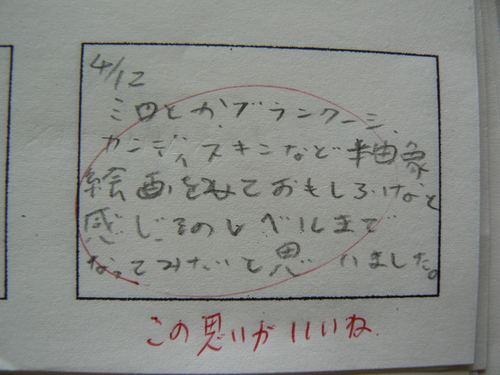 4/12
ミロとか、ブランクーシ、
カンディスキンなど抽象
絵画をみておもしろいなと
感じるのレベルまで
なってみたいと思いました。
この思いがいいね